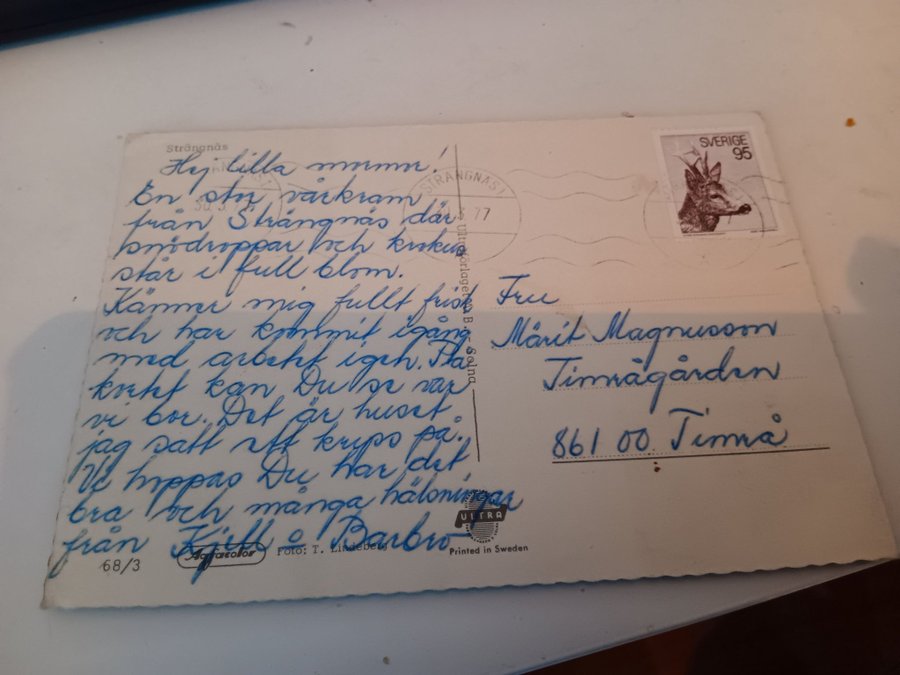 Strängnäs
Hej lilla mormor!
En stor vårkram
från Strängnäs där
snödroppar och krokus
står i full blom.
Känner mig fullt frisk
och har kommit igång
med arbetet igen. På
kortet kan Du se var
vi bor. Det är huset
jag satt ett kryss på.
Vi hoppas Du har det
bra och många hälsningar
från Kjell o Barbro
68/3
Agfacolor
Foto: T. Lindeberg
Ultraförlaget A.B. - Solna
ULTRA
Printed in Sweden
STRÄNGNÄS 1
30.3.77
SVERIGE
95
Fru
Märit Magnusson
Timrågården
861 00 Timrå